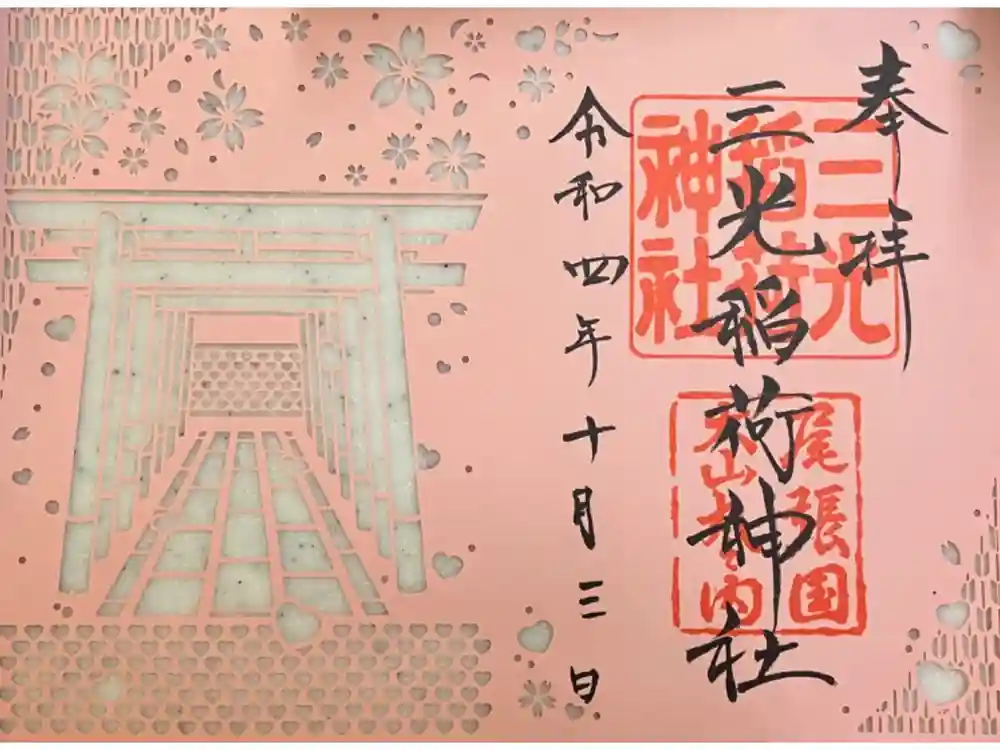 奉拝
三光稲荷神社
三光
稲荷
神社
尾張国
犬山
内
令和四年十月三日